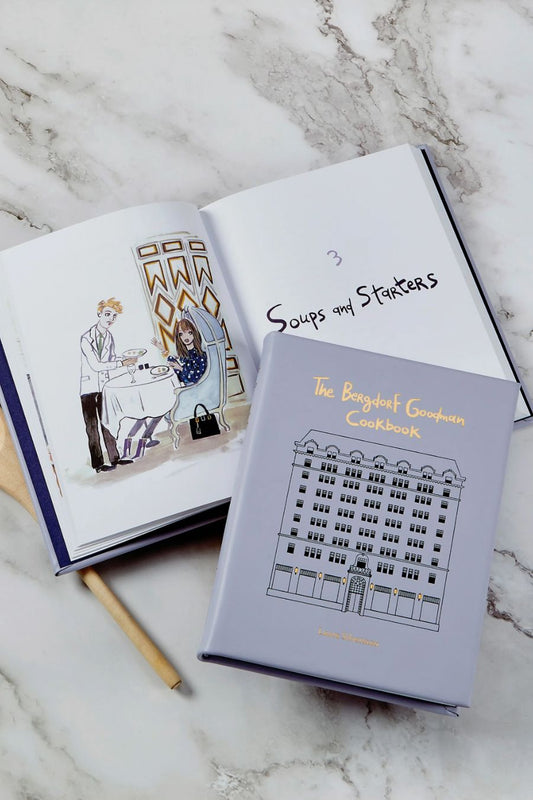 3
Soups and Starters
The Bergdorf Goodman
Cookbook